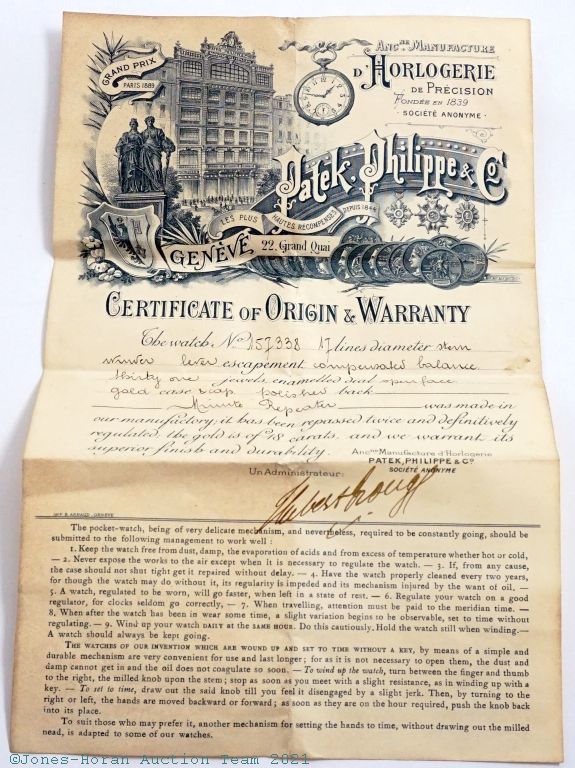 GRAND PRIX
PARIS 1889
ANC.NE MANUFACTURE
D'HORLOGERIE
DE PRÉCISION
FONDÉE EN 1839
SOCIÉTÉ ANONYME
Patek, Philippe & Co
LES PLUS HAUTES RÉCOMPENSES DEPUIS 1844
GENÈVE 22, Grand Quai
CERTIFICATE OF ORIGIN & WARRANTY
The watch No 157338 17 lines diameter stem
winder lever escapement compensated balance
thirty one jewels, enamelled dial open face
gold case polished back
Minute Repeater was made in
our manufactory; it has been repassed twice and definitively
regulated, the gold is of 18 carats, and we warrant its
superior finish and durability.
Anc.ne Manufacture d'Horlogerie
PATEK, PHILIPPE & Co
SOCIÉTÉ ANONYME
Un Administrateur:
The pocket-watch, being of very delicate mechanism, and nevertheless, required to be constantly going, should be
submitted to the following management to work well :
1. Keep the watch free from dust, damp, the evaporation of acids and from excess of temperature whether hot or cold,
— 2. Never expose the works to the air except when it is necessary to regulate the watch. — 3. If, from any cause,
the case should not shut tight get it repaired without delay. — 4. Have the watch properly cleaned every two years,
for though the watch may do without it, its regularity is impeded and its mechanism injured by the want of oil. —
5. A watch, regulated to be worn, will go faster, when left in a state of rest. — 6. Regulate your watch on a good
regulator, for clocks seldom go correctly, — 7. When travelling, attention must be paid to the meridian time. —
8. When after the watch has been in wear some time, a slight variation begins to be observable, set to time without
regulating. — 9. Wind up your watch DAILY AT THE SAME HOUR. Do this cautiously. Hold the watch still when winding. —
A watch should always be kept going.
THE WATCHES OF OUR INVENTION WHICH ARE WOUND UP AND SET TO TIME WITHOUT A KEY, by means of a simple and
durable mechanism are very convenient for use and last longer; for as it is not necessary to open them, the dust and
damp cannot get in and the oil does not coagulate so soon. — To wind up the watch, turn between the finger and thumb
to the right, the milled knob upon the stem; stop as soon as you meet with a slight resistance, as in winding up with a
key. — To set to time, draw out the said knob till you feel it disengaged by a slight jerk. Then, by turning to the
right or left, the hands are moved backward or forward; as soon as they are on the hour required, push the knob back
into its place.
To suit those who may prefer it, another mechanism for setting the hands to time, without drawing out the milled
head, is adapted to some of our watches.
©Jones-Horan Auction Team 2021